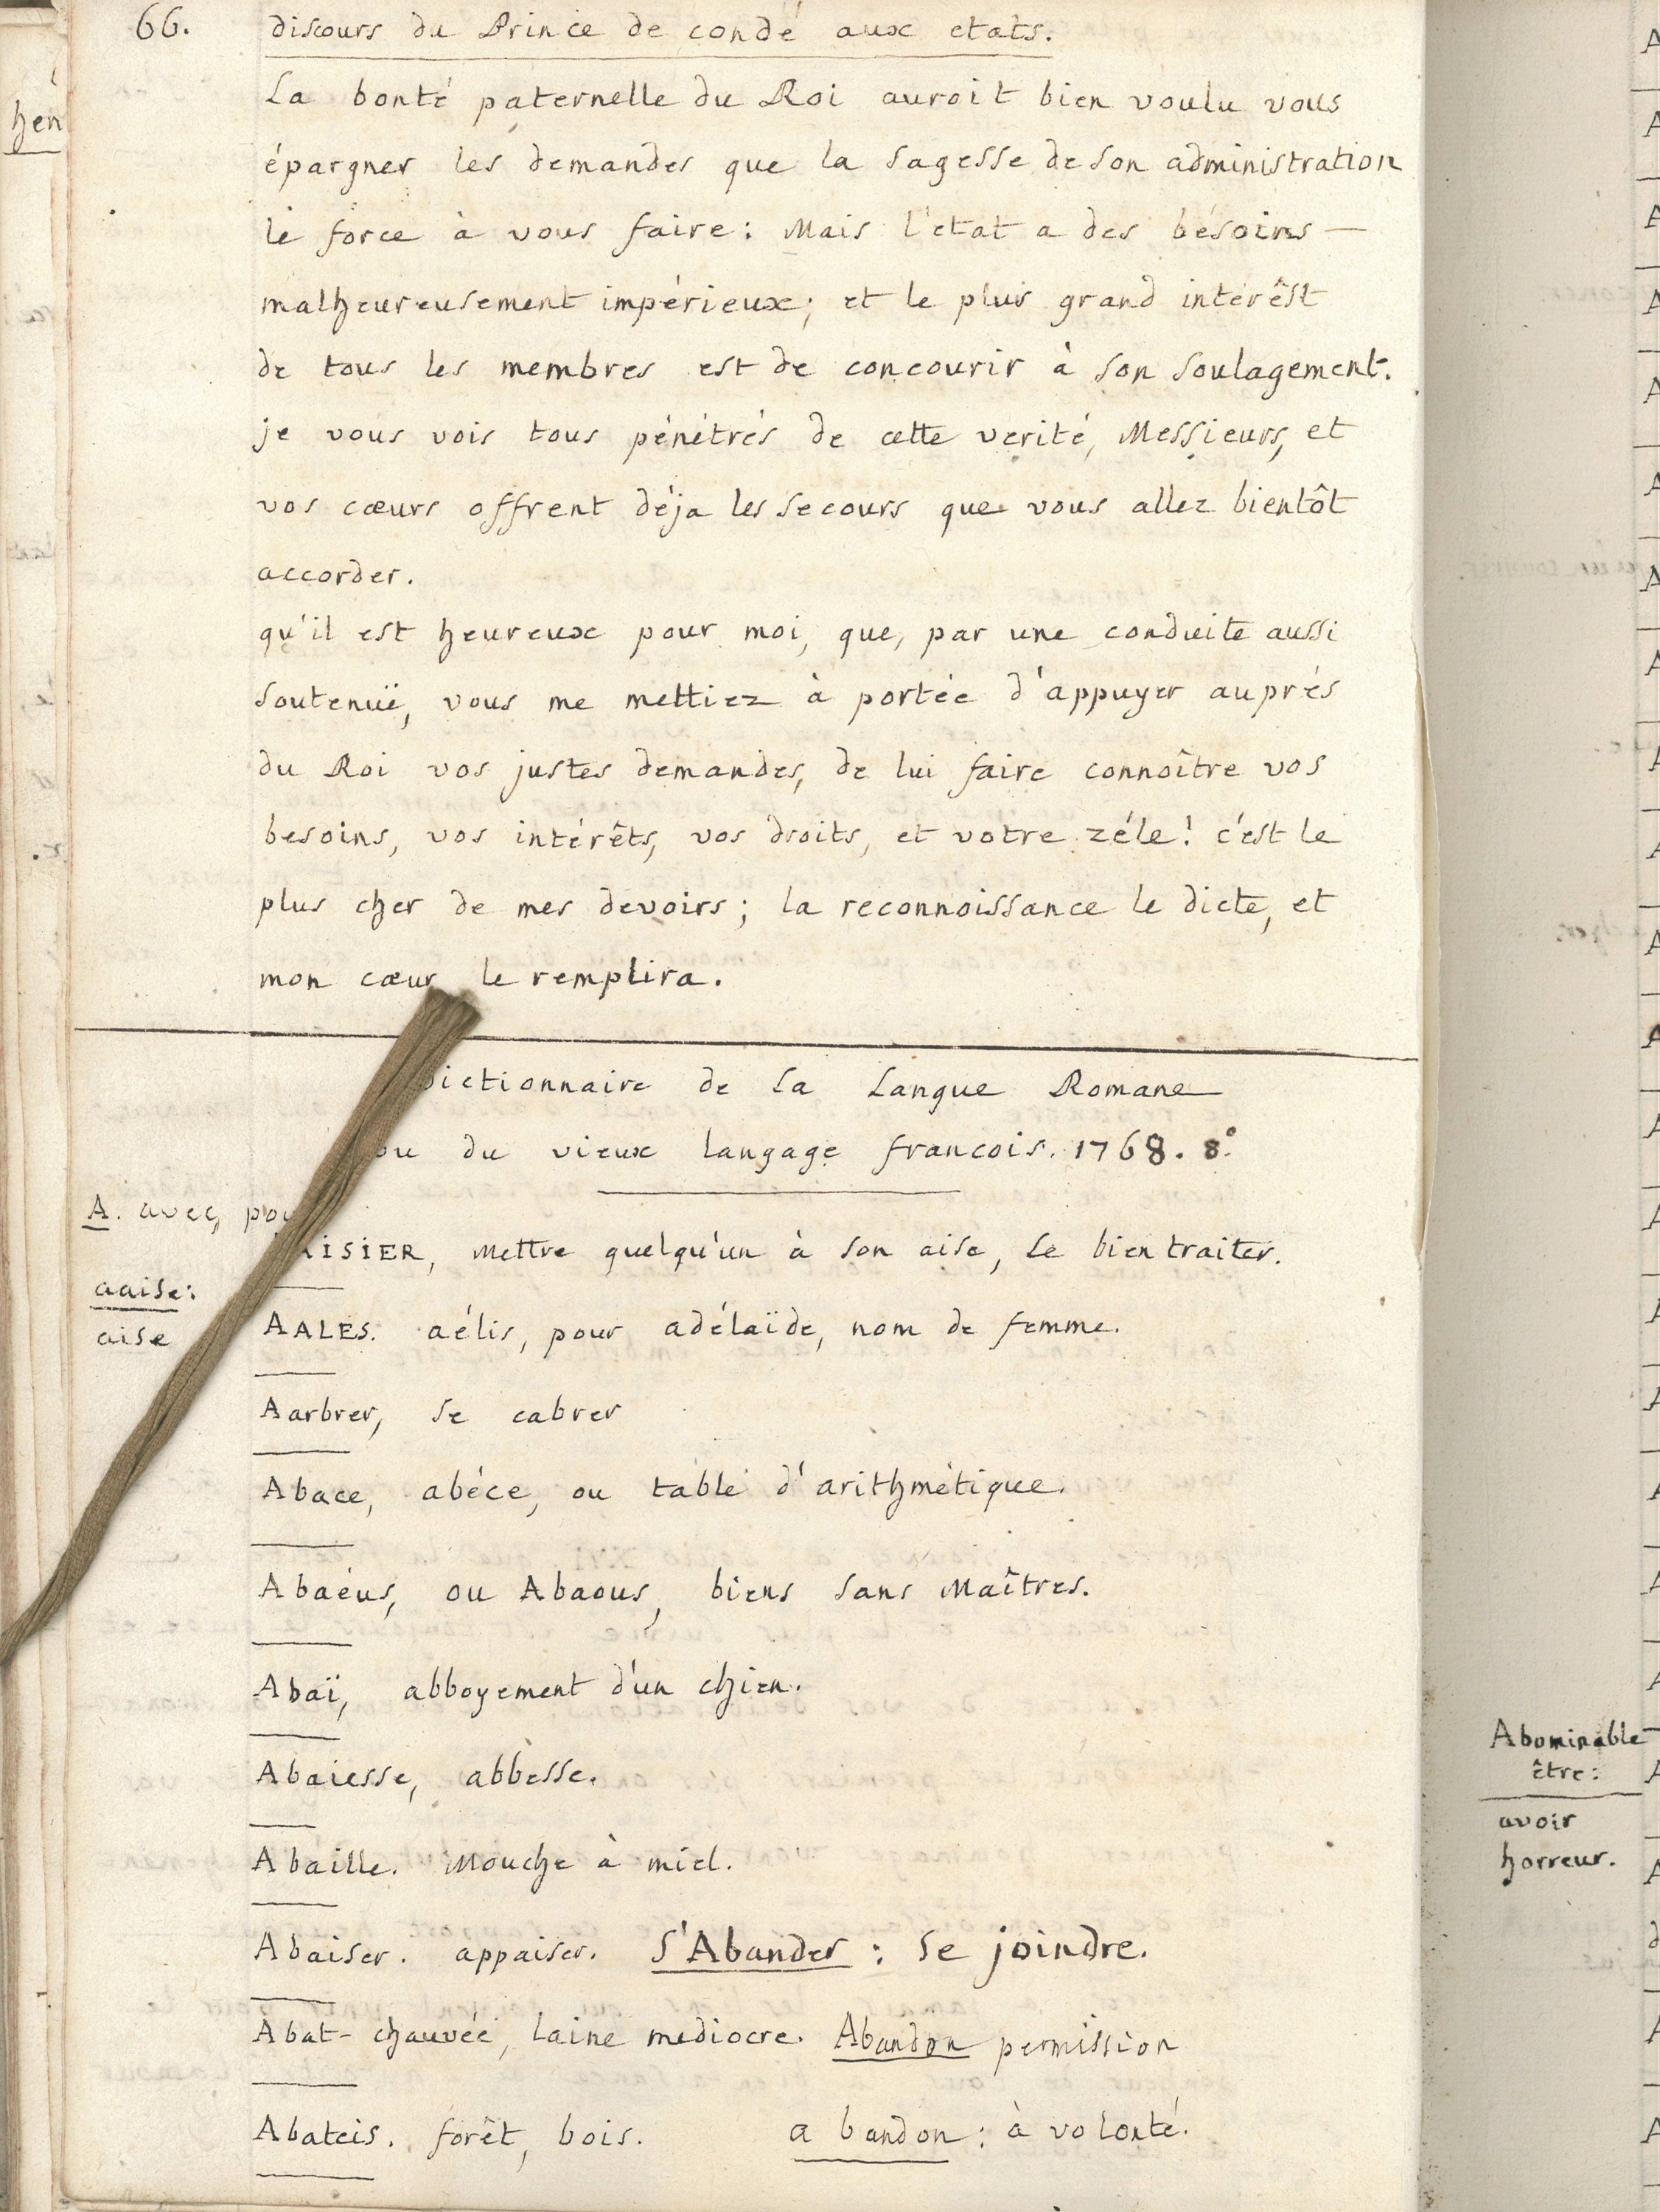 66.
discours du Prince de condé aux etats.
La bonté paternelle du Roi auroit bien voulu vous
épargner les demandes que la sagesse de son administration
le force à vous faire : Mais l'etat a des besoins —
malheureusement impérieux ; et le plus grand intérêst
de tous les membres est de concourir à son soulagement.
je vous vois tous pénétrés de cette verité, Messieurs, et
vos cœurs offrent déja les secours que vous allez bientôt
accorder.
qu'il est heureux pour moi, que, par une conduite aussi
soutenuë, vous me mettiez à portée d'appuyer auprés
du Roi vos justes demandes, de lui faire connoître vos
besoins, vos intérêts, vos droits, et votre zéle ! c'est le
plus cher de mes devoirs ; la reconnoissance le dicte, et
mon cœur le remplira.
Dictionnaire de la Langue Romane
ou du vieux langage francois. 1768. 8.°
A. avec, pou
AISIER, Mettre quelqu'un à son aise, le bien traiter.
aaise :
aise
AALES. aélis, pour adélaïde, nom de femme.
Aarbrer, se cabrer
Abace, abéce, ou table d'arithmétique.
Abaéus, ou Abaous, biens sans Maîtres.
Abaï, abboyement d'un chien.
Abaiesse, abbesse.
Abaille. Mouche à miel.
Abaiser. appaiser. S'Abander : se joindre.
Abat-chauvée, laine mediocre. Abandon permission
Abateis. forêt, bois. a bandon : à volonté.
hen
Abominable
être :
avoir
horreur.